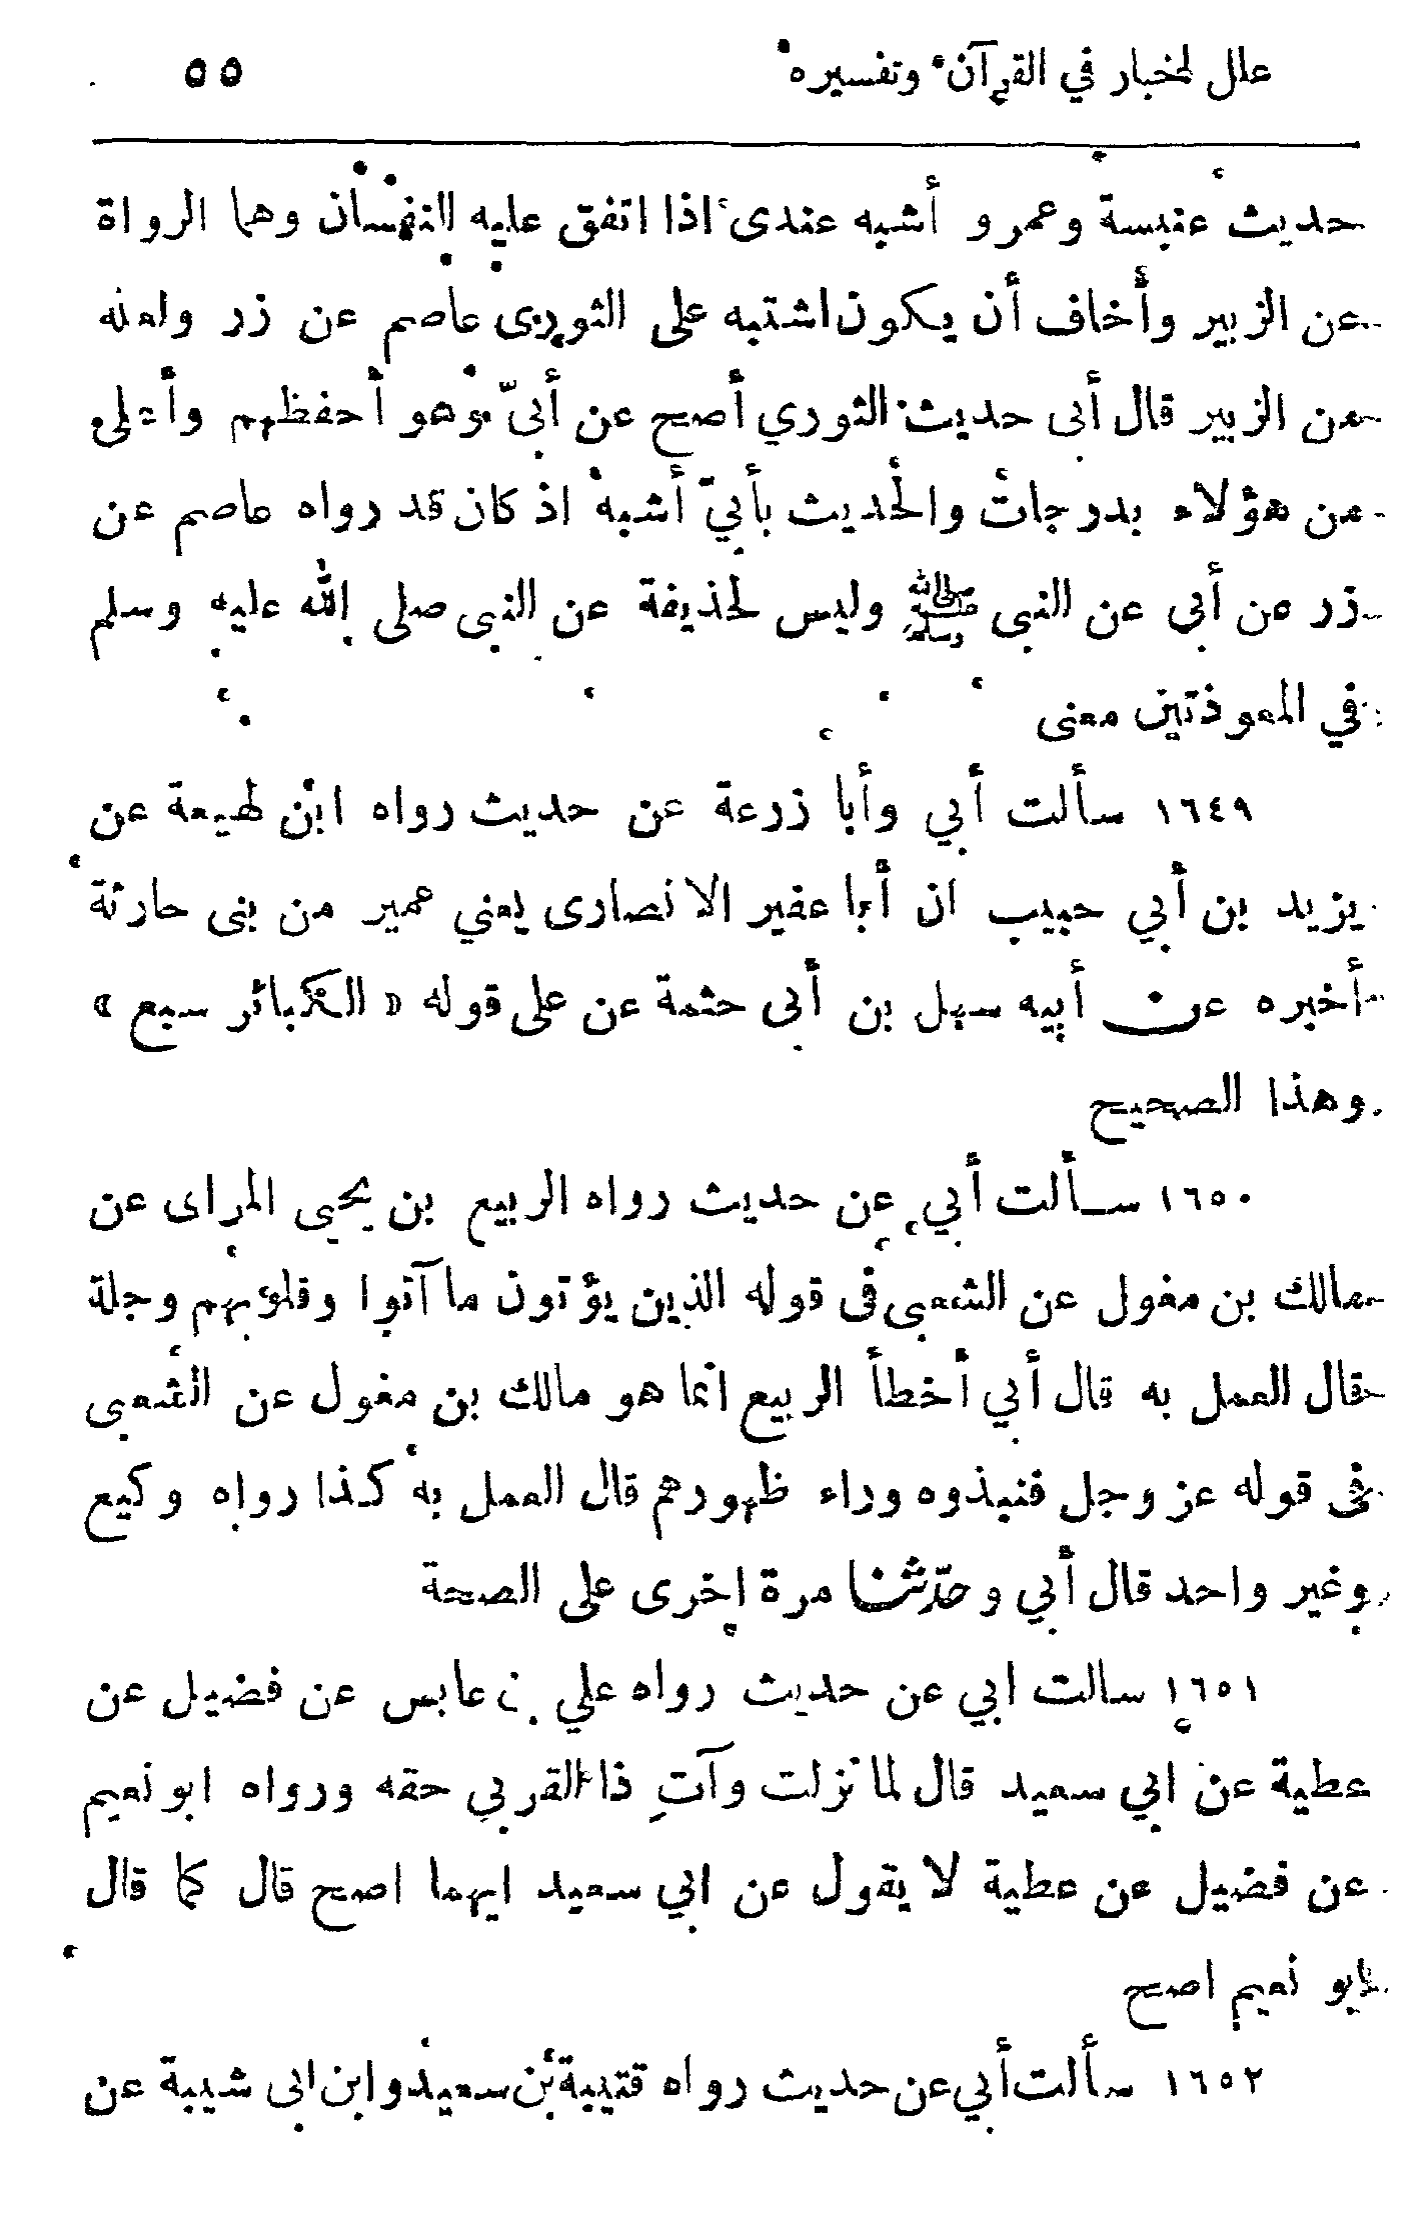 علل لخبار في القرآن وتفسيره ٥٥
حديث عنبسة وعمرو أشبه عندى اذا اتفق عليه النفسان وهما الرواة
عن الزبير وأخاف أن يكون اشتبه على الثورى عاصم عن زر ولعله
عن الزبير قال أبى حديث الثوري أصح عن أبىّ وهو أحفظهم وأعلى
من هؤلاء بدرجات والحديث بأبيّ أشبه اذ كان قد رواه عاصم عن
زر عن أبي عن النبى ﷺ وليس لحذيفة عن النبى صلى الله عليه وسلم
في المعوذتين معنى
١٦٤٩ سألت أبي وأبا زرعة عن حديث رواه ابن لهيعة عن
يزيد بن أبي حبيب ان أبا عفير الانصارى يعني عمير من بنى حارثة
أخبره عن أبيه سهل بن أبى حثمة عن على قوله « الكبائر سبع »
وهذا الصحيح
١٦٥٠ سألت أبي عن حديث رواه الربيع بن يحيى المراى عن
مالك بن مغول عن الشعبى فى قوله الذين يؤتون ما آتوا وقلوبهم وجلة
قال العمل به قال أبي أخطأ الربيع انما هو مالك بن مغول عن الشعبى
فى قوله عز وجل فنبذوه وراء ظهورهم قال العمل به كذا رواه وكيع
وغير واحد قال أبي وحدّثنا مرة اخرى على الصحة
١٦٥١ سالت ابي عن حديث رواه علي بن عابس عن فضيل عن
عطية عن ابي سعيد قال لما نزلت وآتِ ذا القربي حقه ورواه ابو نعيم
عن فضيل عن عطية لا يقول عن ابي سعيد ايهما اصح قال كما قال
ابو نعيم اصح
١٦٥٢ سألت أبي عن حديث رواه قتيبة بن سعيد وابن ابى شيبة عن